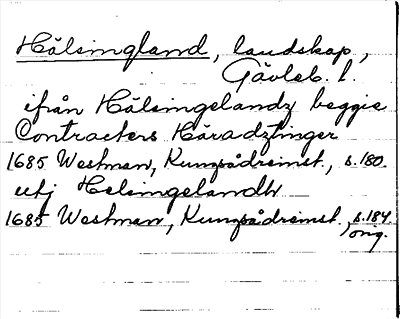 Hälsingland, landskap,
Gävleb. l.
ifrån Hälsingelandz beggie
Contracters Häradztinger
1685 Westman, Kungsådreinst., s. 180.
utj Helsingelandh
1685 Westman, Kungsådreinst., s. 184
orig.